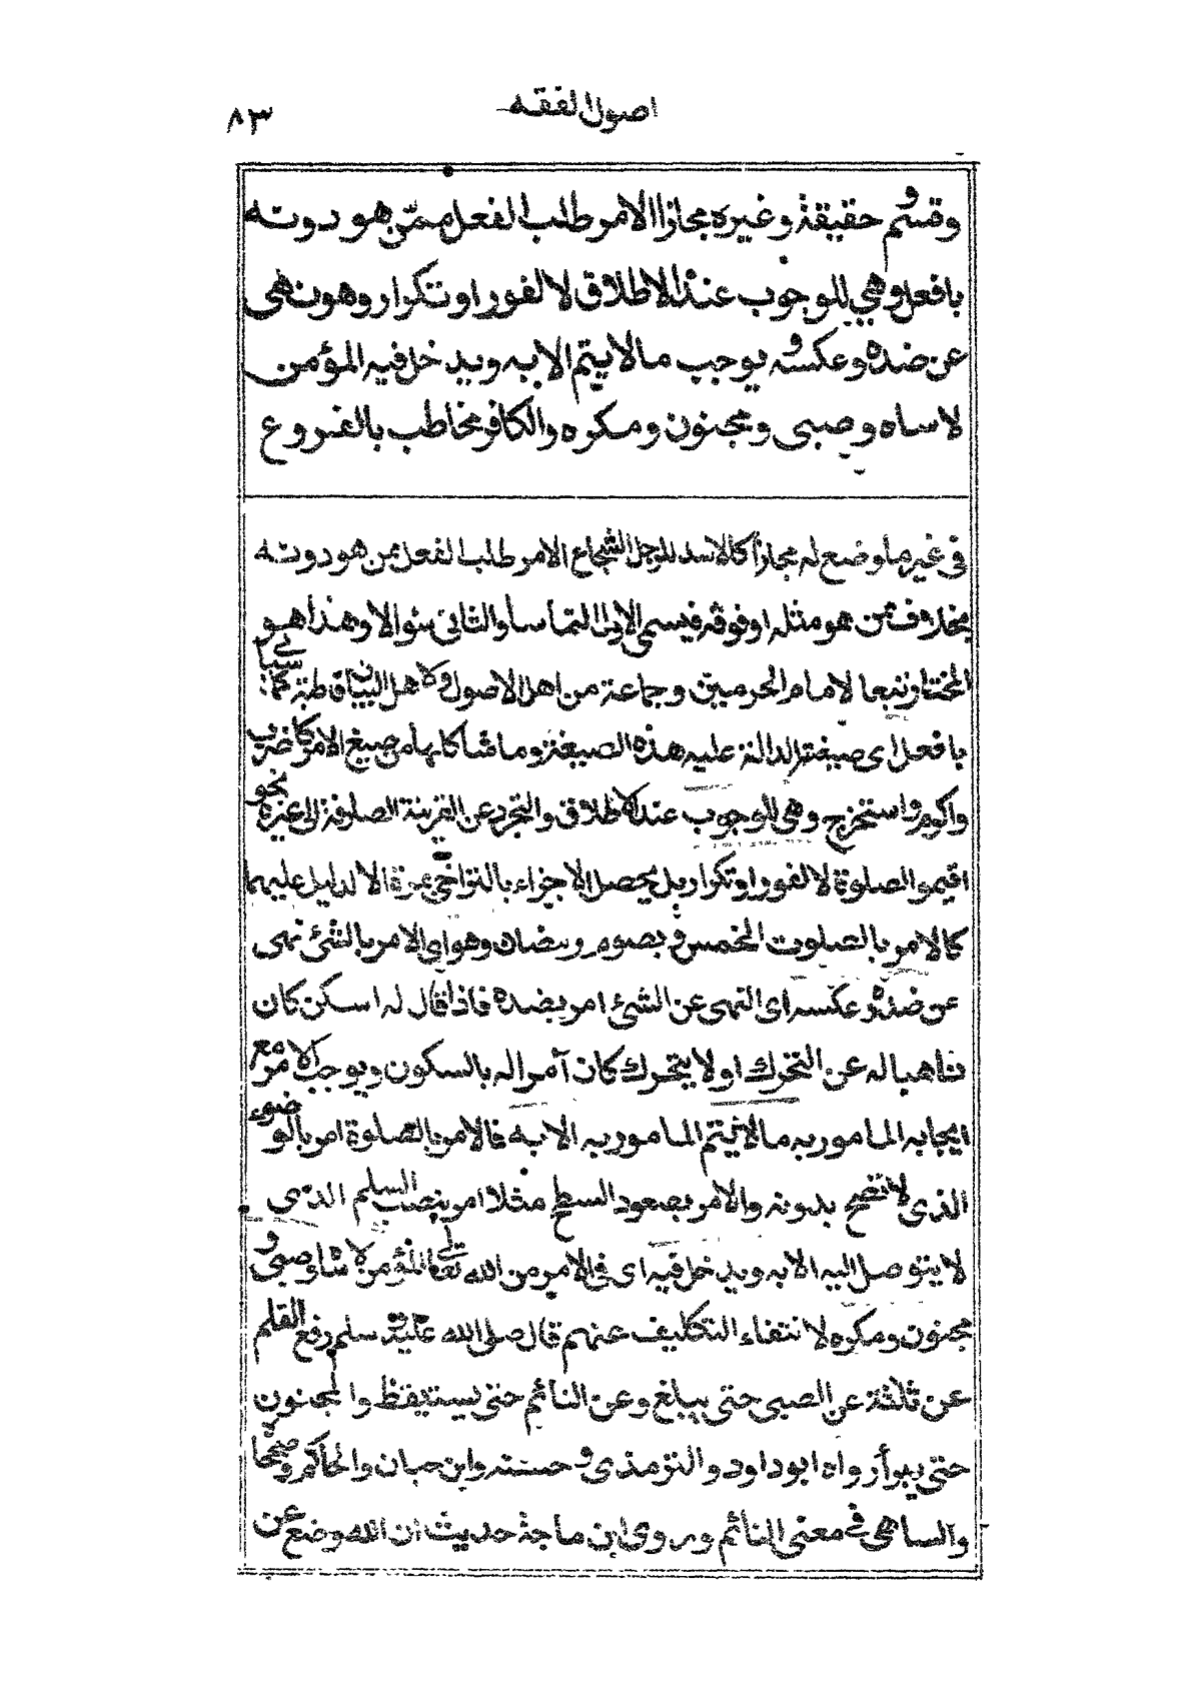 اصول الفقه
٨٣
وقسم حقيقة وغيره مجازا الامر طلب الفعل ممّن هو دونه
بافعل وهي للوجوب عند الاطلاق لا لفور او تكرار وهو نهى
عن ضده وعكسه ويوجب مالا يتم الا به ويدخل فيه المؤمن
لا ساه وصبى ومجنون ومكره والكافر مخاطب بالفروع
فى غير ما وضع له مجازا كالاسد للرجل الشجاع الامر طلب الفعل ممن هو دونه
بخلاف ممن هو مثله او فوقه فيسمى الاول التماسا والثانى سئوالا وهذا هو
المختار تبعا لامام الحرمين وجماعة من اهل الاصول ولاهل البيان قاطبة كما سياتى
بافعل اى صيغته الدالة عليه هذه الصيغة وما شاكلها من صيغ الامر كاضرب
واكرم واستخرج وهى للوجوب عند الاطلاق والتجرد عن القرينة الصارفة الى غيره نحو
اقيموا الصلوة لا لفور او تكرار بل يحصل الاجزاء بالتراخى بمرة الا لدليل عليهما
كالامر بالصلوت الخمس وبصوم رمضان وهو اى الامر بالشئ نهى
عن ضده وعكسه اى النهى عن الشئ امر بضده فاذا قال له اسكن كان
ناهيا له عن التحرك او لا يتحرك كان آمرا له بالسكون ويوجب الامر مع
ايجابه المامور به مالا يتم المامور به الا به فالامر بالصلوة امر بالوضوء
الذى لا تصح بدونه والامر بصعود السطح مثلا امر بنصب السلم الذى
لا يتوصل اليه الا به ويدخل فيه اى فى الامر من الله تعالى المؤمن لا ساه وصبى و
مجنون ومكره لانتفاء التكليف عنهم قال صلى الله عليه وسلم رفع القلم
عن ثلاثة عن الصبى حتى يبلغ وعن النائم حتى يستيقظ والمجنون
حتى يبرأ رواه ابو داود والترمذى وحسنه وابن حبان والحاكم وصححا
والساهى فى معنى النائم وروى ابن ماجة حديث ان الله وضع عن